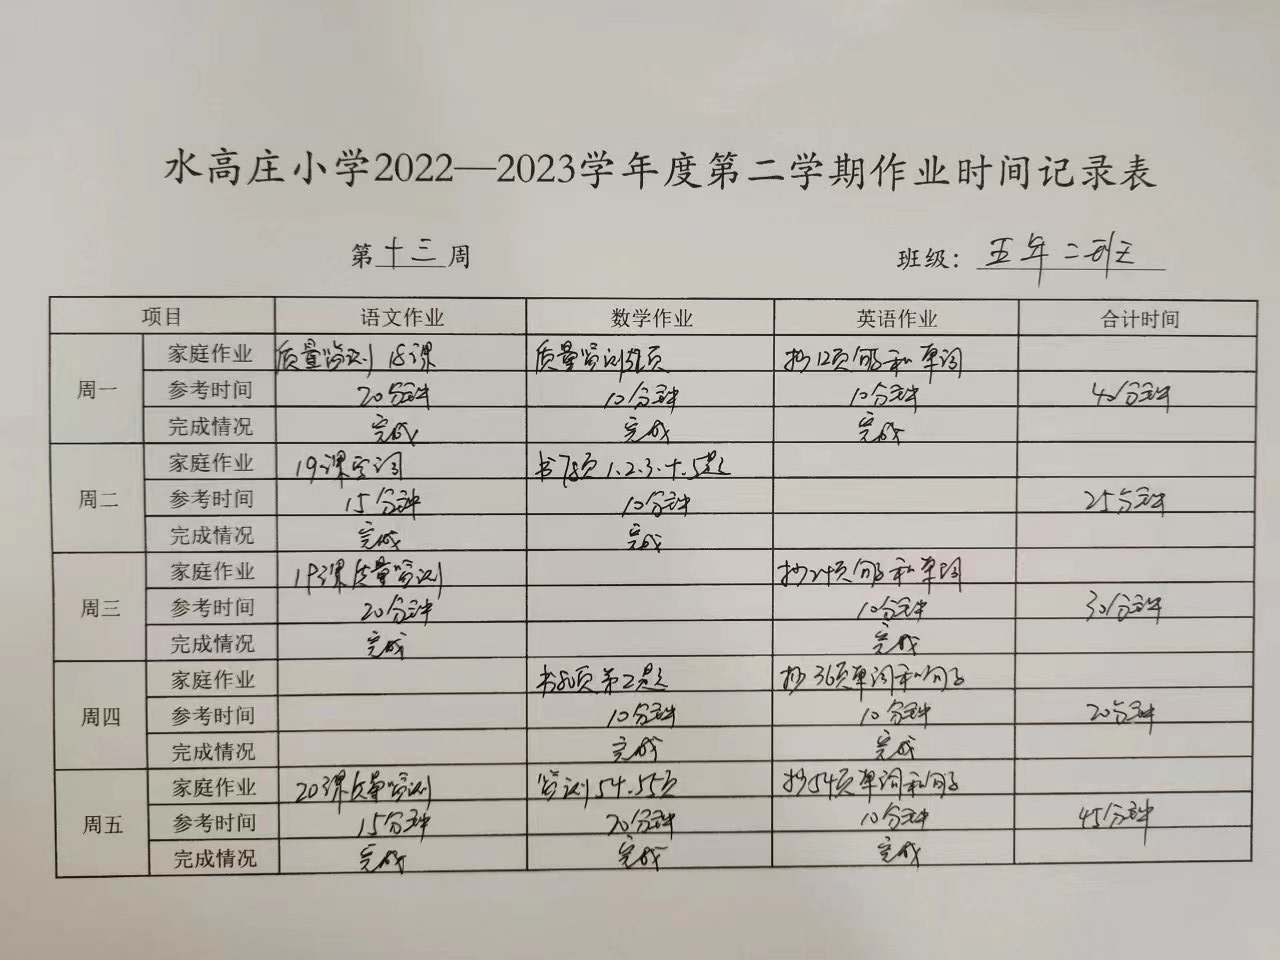 水高庄小学2022—2023学年度第二学期作业时间记录表
第十三周 班级：五年二班
项目 语文作业 数学作业 英语作业 合计时间
周一
家庭作业 质量监测 18课 质量监测 抄12页句子和单词
参考时间 20分钟 10分钟 10分钟 40分钟
完成情况 完成 完成 完成
周二
家庭作业 19课生词 书78页1.2.3.十.5题
参考时间 15分钟 10分钟 25分钟
完成情况 完成 完成
周三
家庭作业 19课质量监测 抄24页句子和单词
参考时间 20分钟 10分钟 30分钟
完成情况 完成 完成
周四
家庭作业 书80页第2题 抄36页单词和句子
参考时间 10分钟 10分钟 20分钟
完成情况 完成 完成
周五
家庭作业 20课质量监测 监测54.55页 抄54页单词和句子
参考时间 15分钟 20分钟 10分钟 45分钟
完成情况 完成 完成 完成